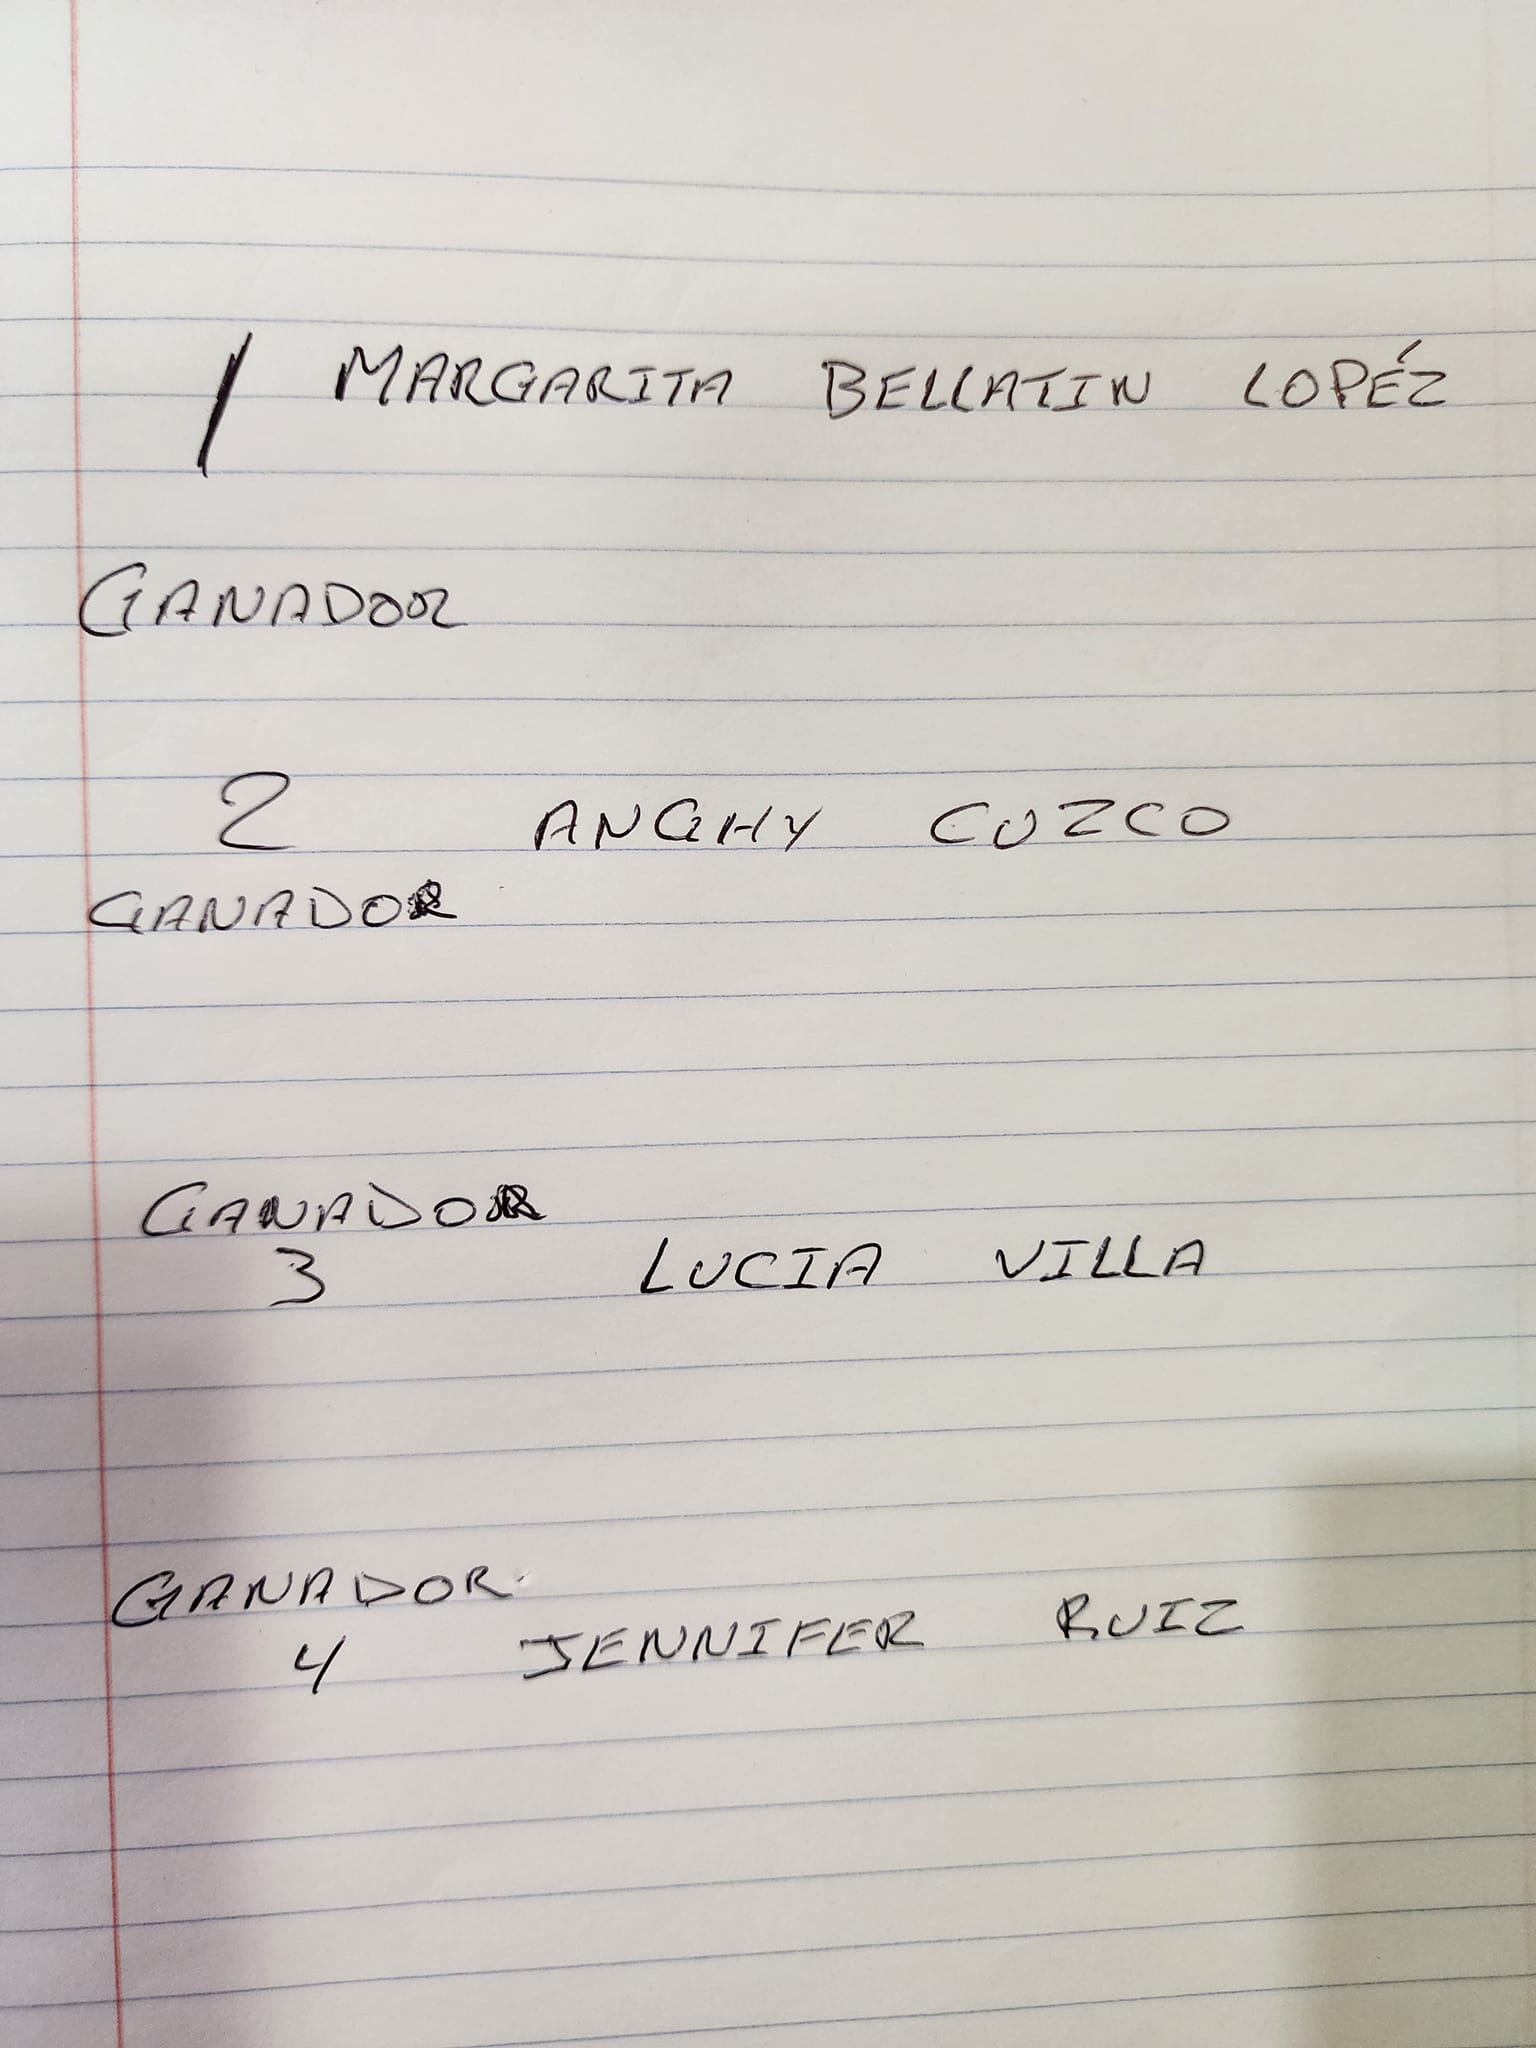 1 MARGARITA BELLATIN LOPÉZ
GANADOR
2 ANGHY CUZCO
GANADOR
GANADOR
3 LUCIA VILLA
GANADOR
4 JENNIFER RUIZ